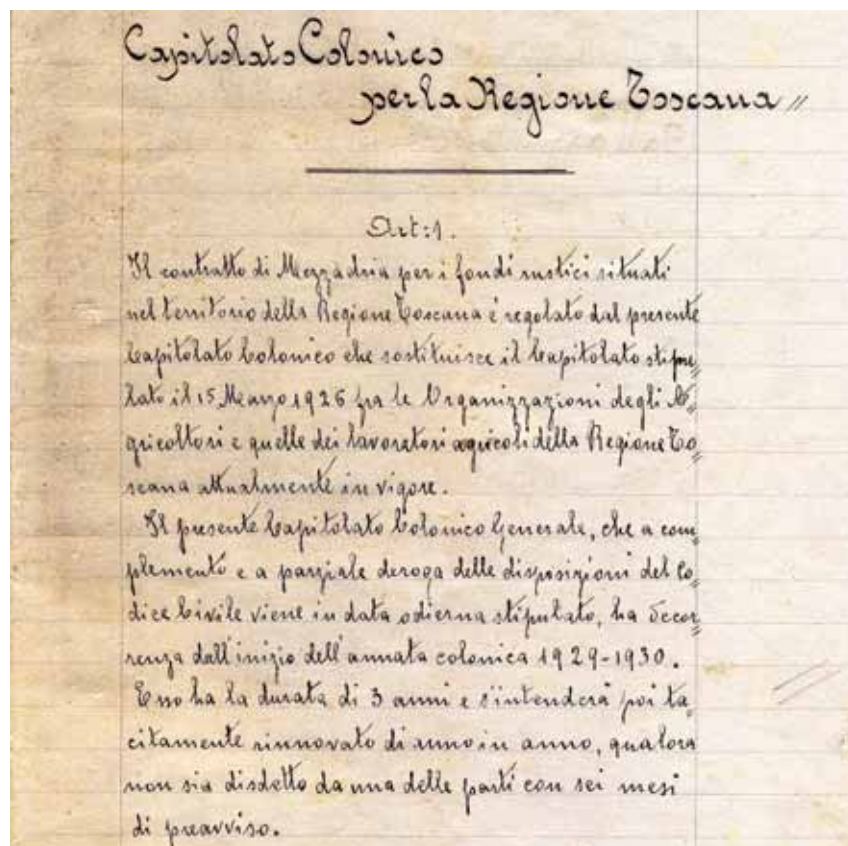 Capitolato Colonico
per la Regione Toscana〃
Art: 1.
Il contratto di Mezzadria per i fondi rustici situati
nel territorio della Regione Toscana è regolato dal presente
Capitolato Colonico che sostituisce il Capitolato stipu〃
lato il 15 Marzo 1926 fra le Organizzazioni degli A〃
gricoltori e quelle dei lavoratori agricoli della Regione To〃
scana attualmente in vigore.
Il presente Capitolato Colonico Generale, che a com〃
plemento e a parziale deroga delle disposizioni del Co〃
dice Civile viene in data odierna stipulato, ha decor〃
renza dall'inizio dell'annata colonica 1929-1930.
Esso ha la durata di 3 anni e s'intenderà poi ta〃
citamente rinnovato di anno in anno, qualora
non sia disdetto da una delle parti con sei mesi
di preavviso.